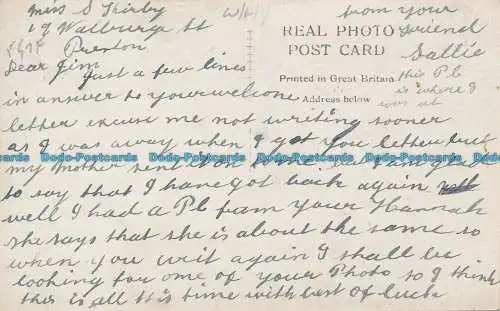 Miss S Kirby
19 Walburge St
Preston
Dear Jim
Just a few lines
in answer to your welcome
letter excuse me not writing sooner
as I was away when I got you letter but
my Mother sent it on
to say that I have got back again
well I had a PC fam your Hannah
she says that she is about the same so
when you writ again I shall be
looking for one of your Photo so I think
this is all this time with best of luck
from your
friend
Sallie
this PC
is where I
was at
REAL PHOTO
POST CARD
Printed in Great Britain
Address below
Dodo-Postcards Dodo-Postcards Dodo-Postcards Dodo-Postcards Dodo-Postcards Dodo-Postcards